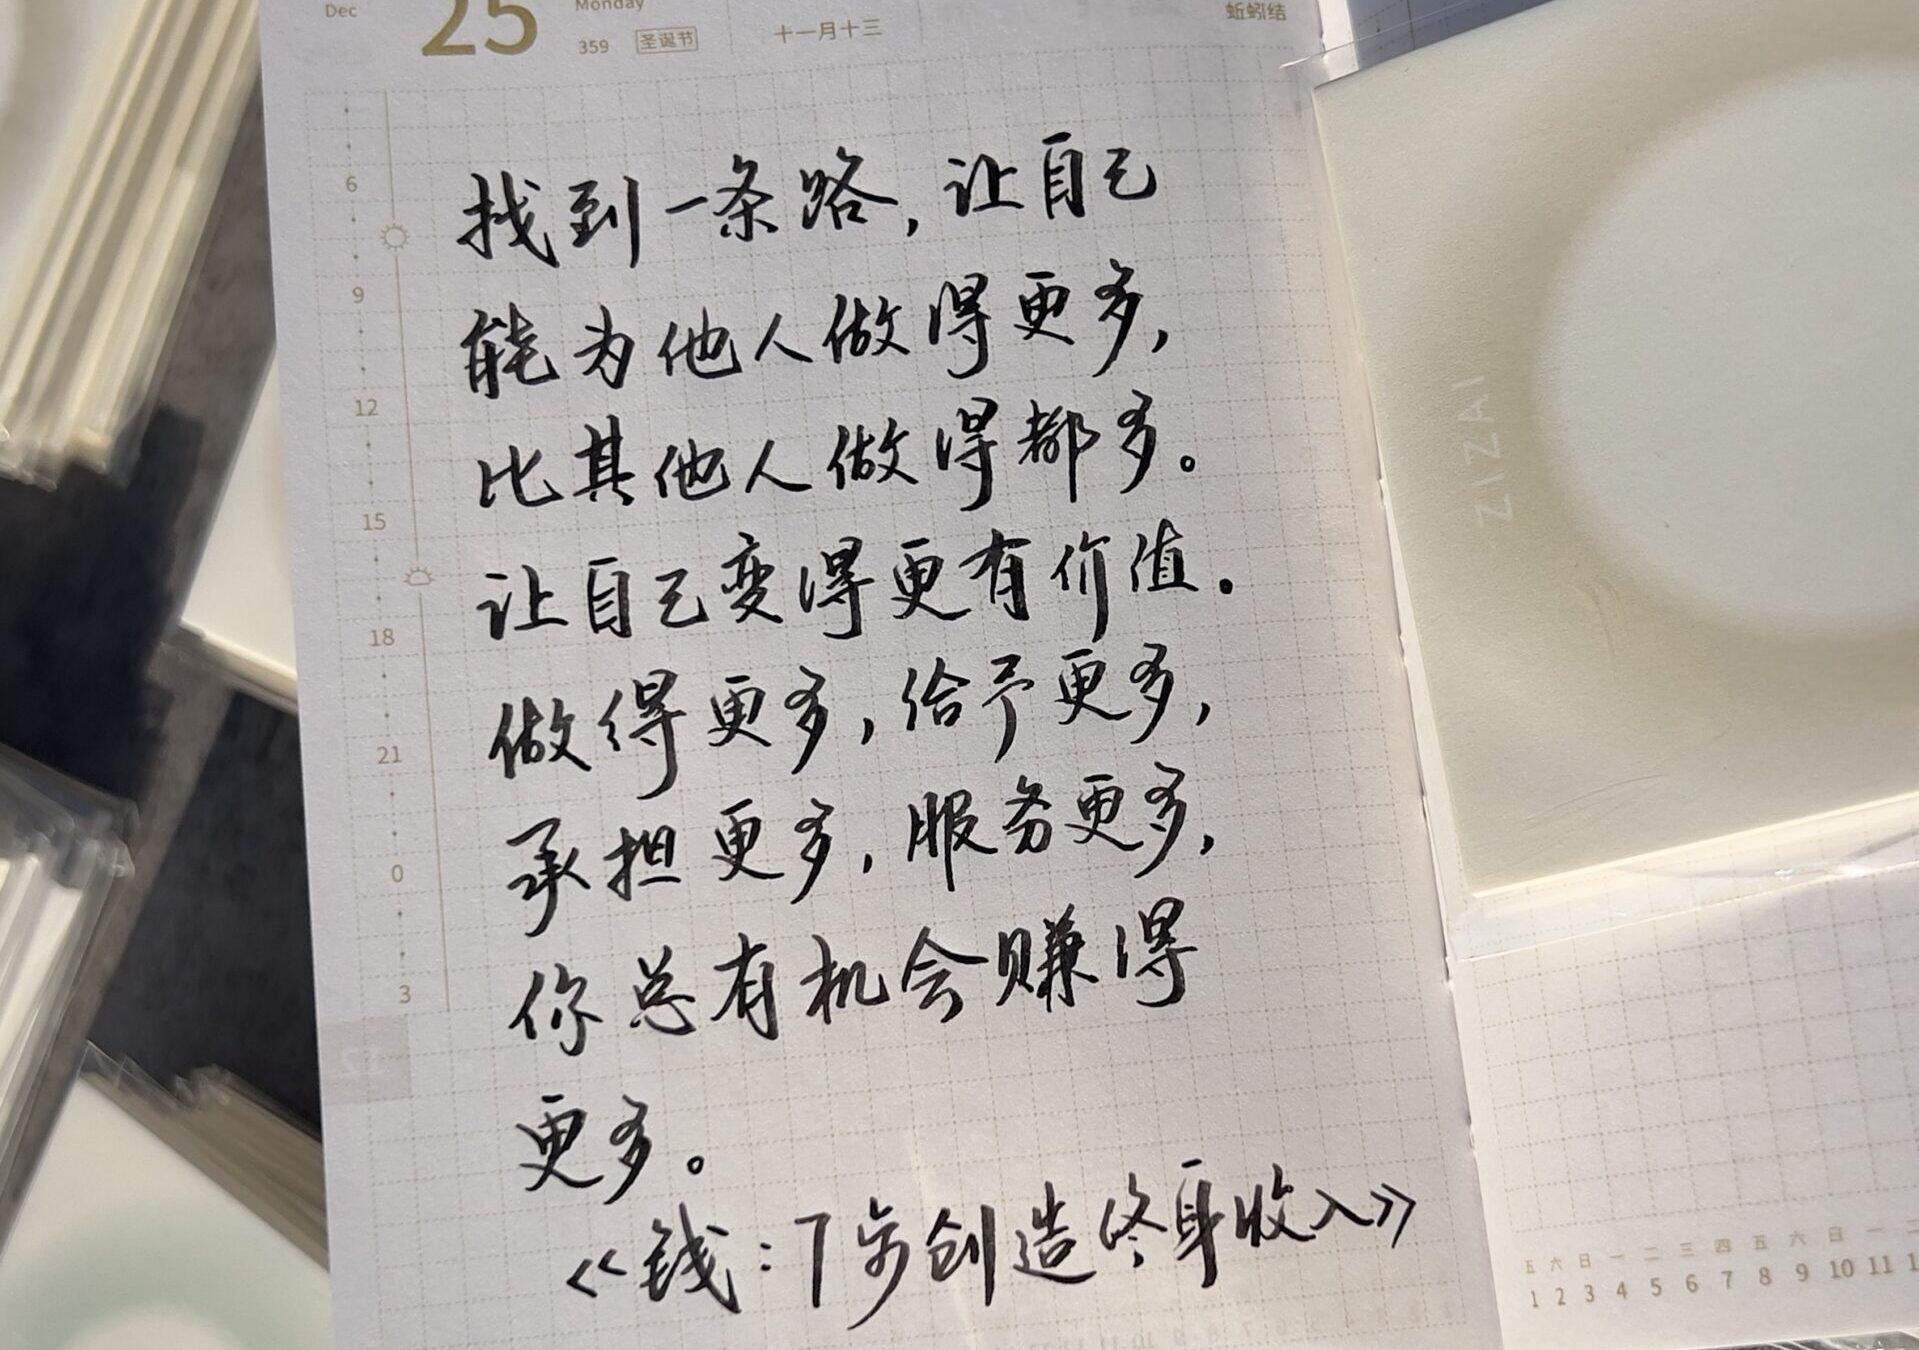 Dec
25
Monday
359 圣诞节
十一月十三
蚯蚓结
6
9
12
15
18
21
0
3
找到一条路,让自己
能为他人做得更多,
比其他人做得都多。
让自己变得更有价值。
做得更多,给予更多,
承担更多,服务更多,
你总有机会赚得
更多。
《钱:7步创造终身收入》
ZIZAI
五 六 日 一 二 三 四 五 六 日 一 二
1 2 3 4 5 6 7 8 9 10 11